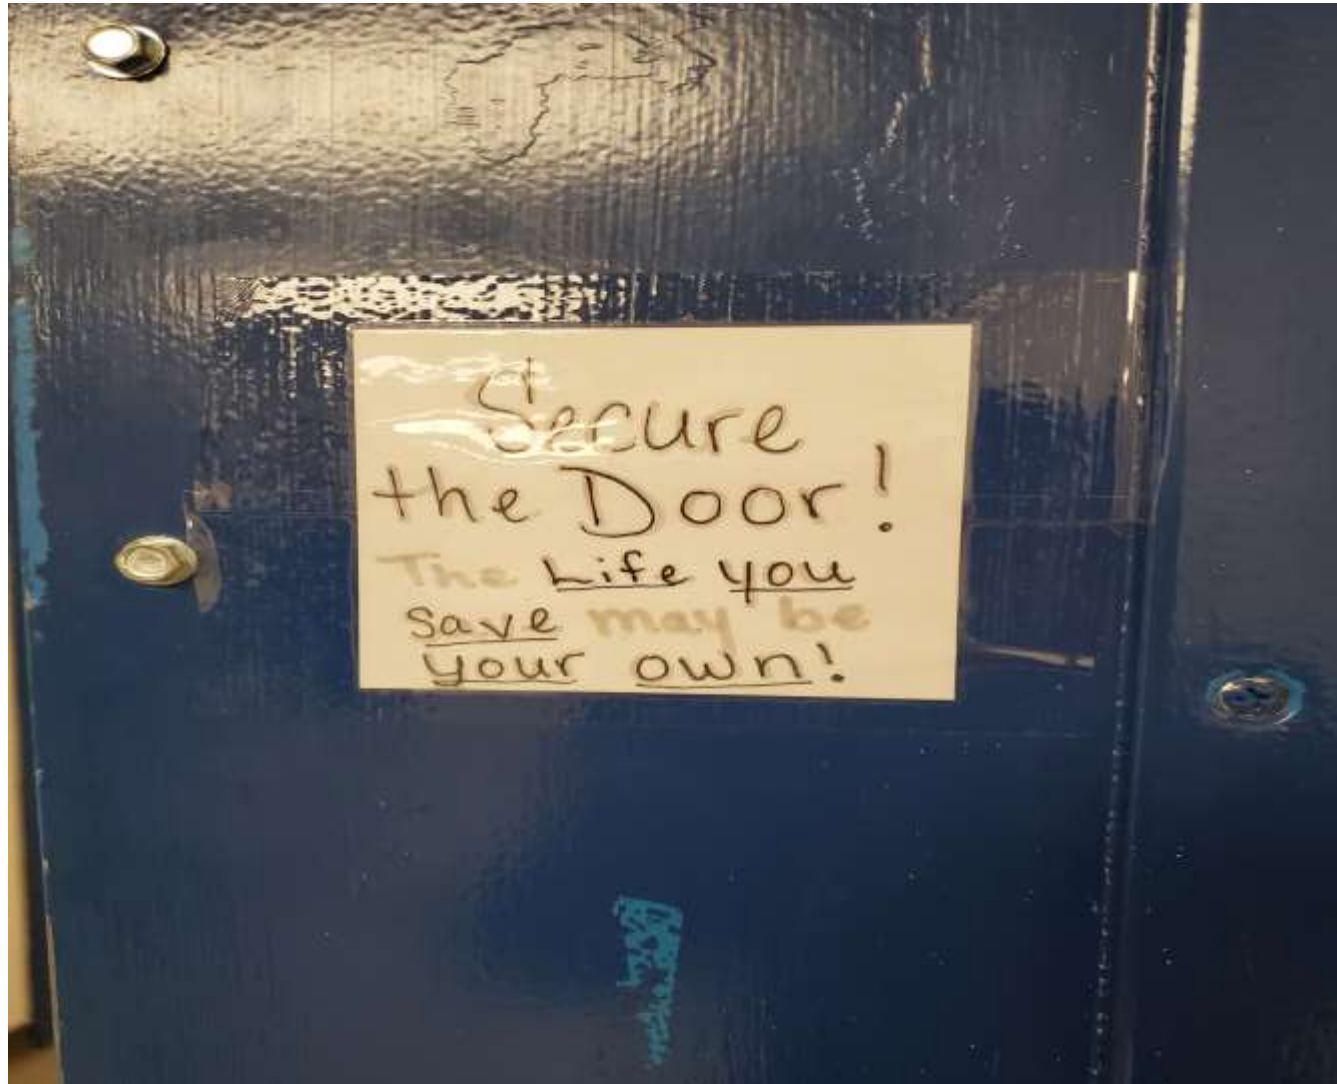 Secure
the Door!
The Life you
save may be
your own!